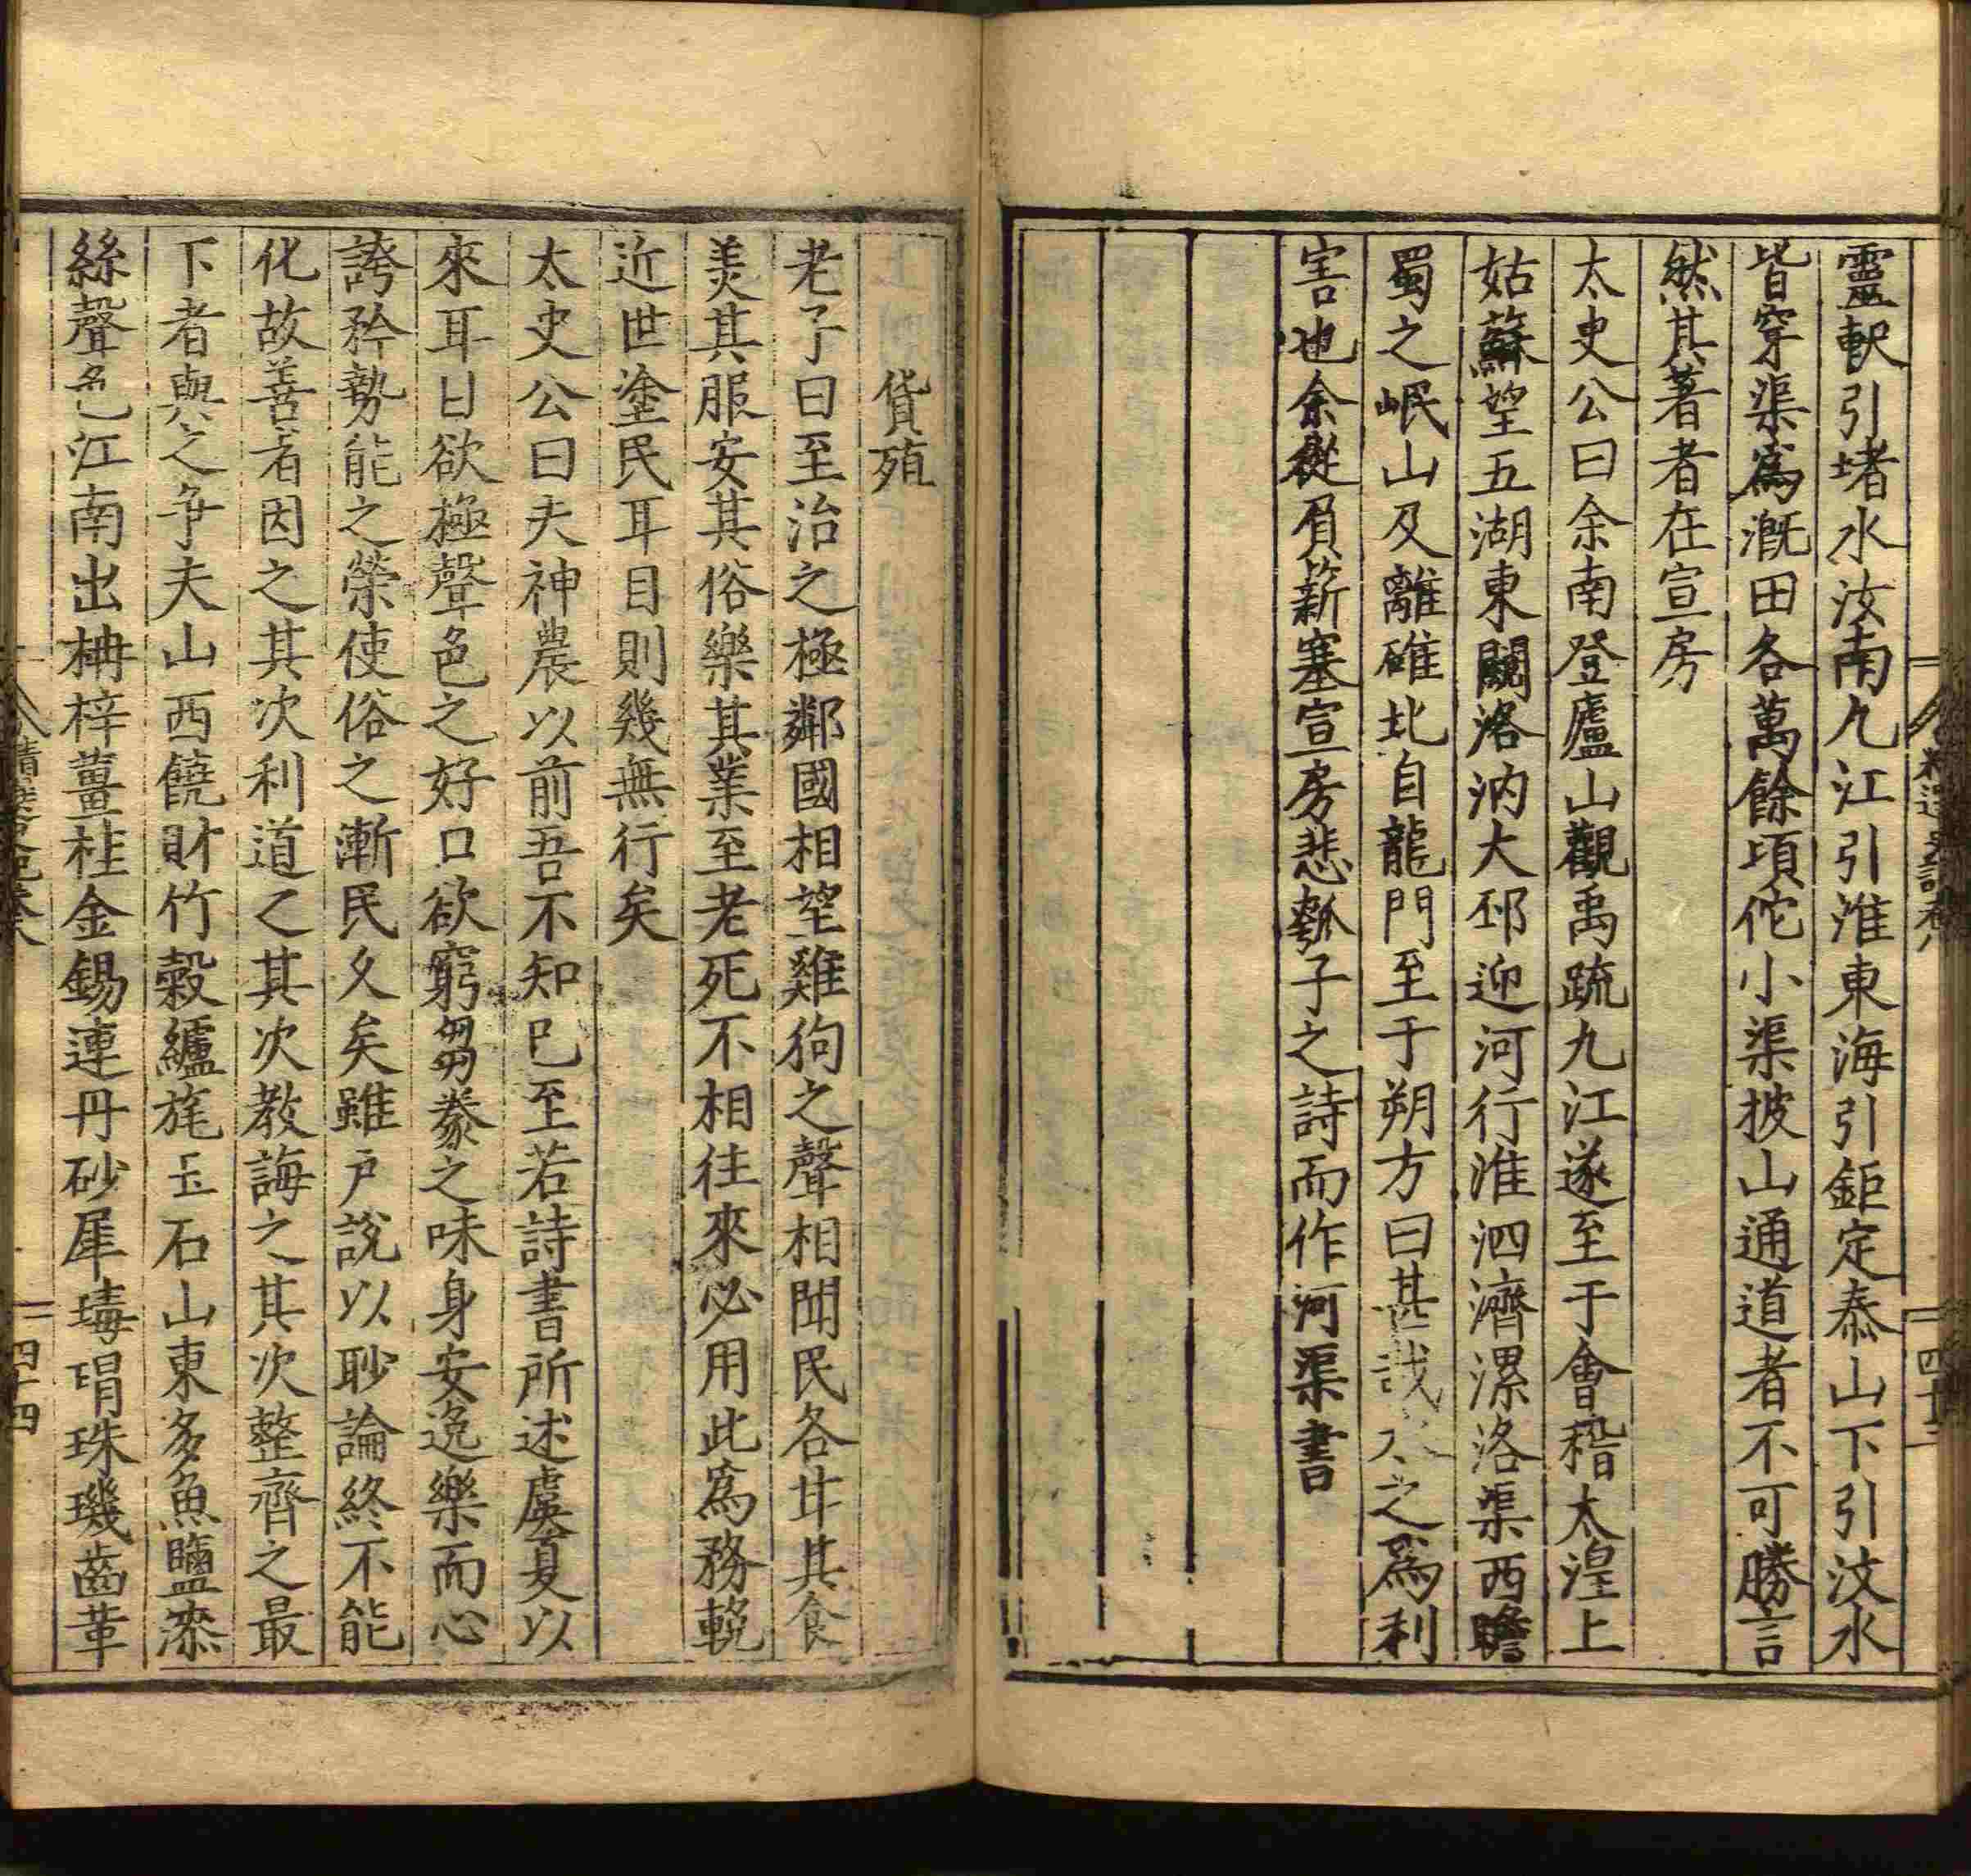 靈軹引堵水汝南九江引淮東海引鉅定泰山下引汶水
皆穿渠爲漑田各萬餘頃佗小渠披山通道者不可勝言
然其著者在宣房
太史公曰余南登廬山觀禹疏九江遂至于會稽太湟上
姑蘇望五湖東闚洛汭大邳迎河行淮泗濟漯洛渠西瞻
蜀之岷山及離碓北自龍門至于朔方曰甚哉之爲利
害也余從負薪塞宣房悲瓠子之詩而作河渠書
貨殖
老子曰至治之極鄰國相望雞狗之聲相聞民各甘其食
美其服安其俗樂其業至老死不相往來必用此爲務輓
近世塗民耳目則幾無行矣
太史公曰夫神農以前吾不知已至若詩書所述虞夏以
來耳目欲極聲色之好口欲窮芻豢之味身安逸樂而心
誇矜勢能之榮使俗之漸民久矣雖戶說以眇論終不能
化故善者因之其次利道之其次教誨之其次整齊之最
下者與之爭夫山西饒財竹穀纑旄玉石山東多魚鹽漆
絲聲色江南出枏梓薑桂金錫連丹砂犀瑇瑁珠璣齒革
四十四